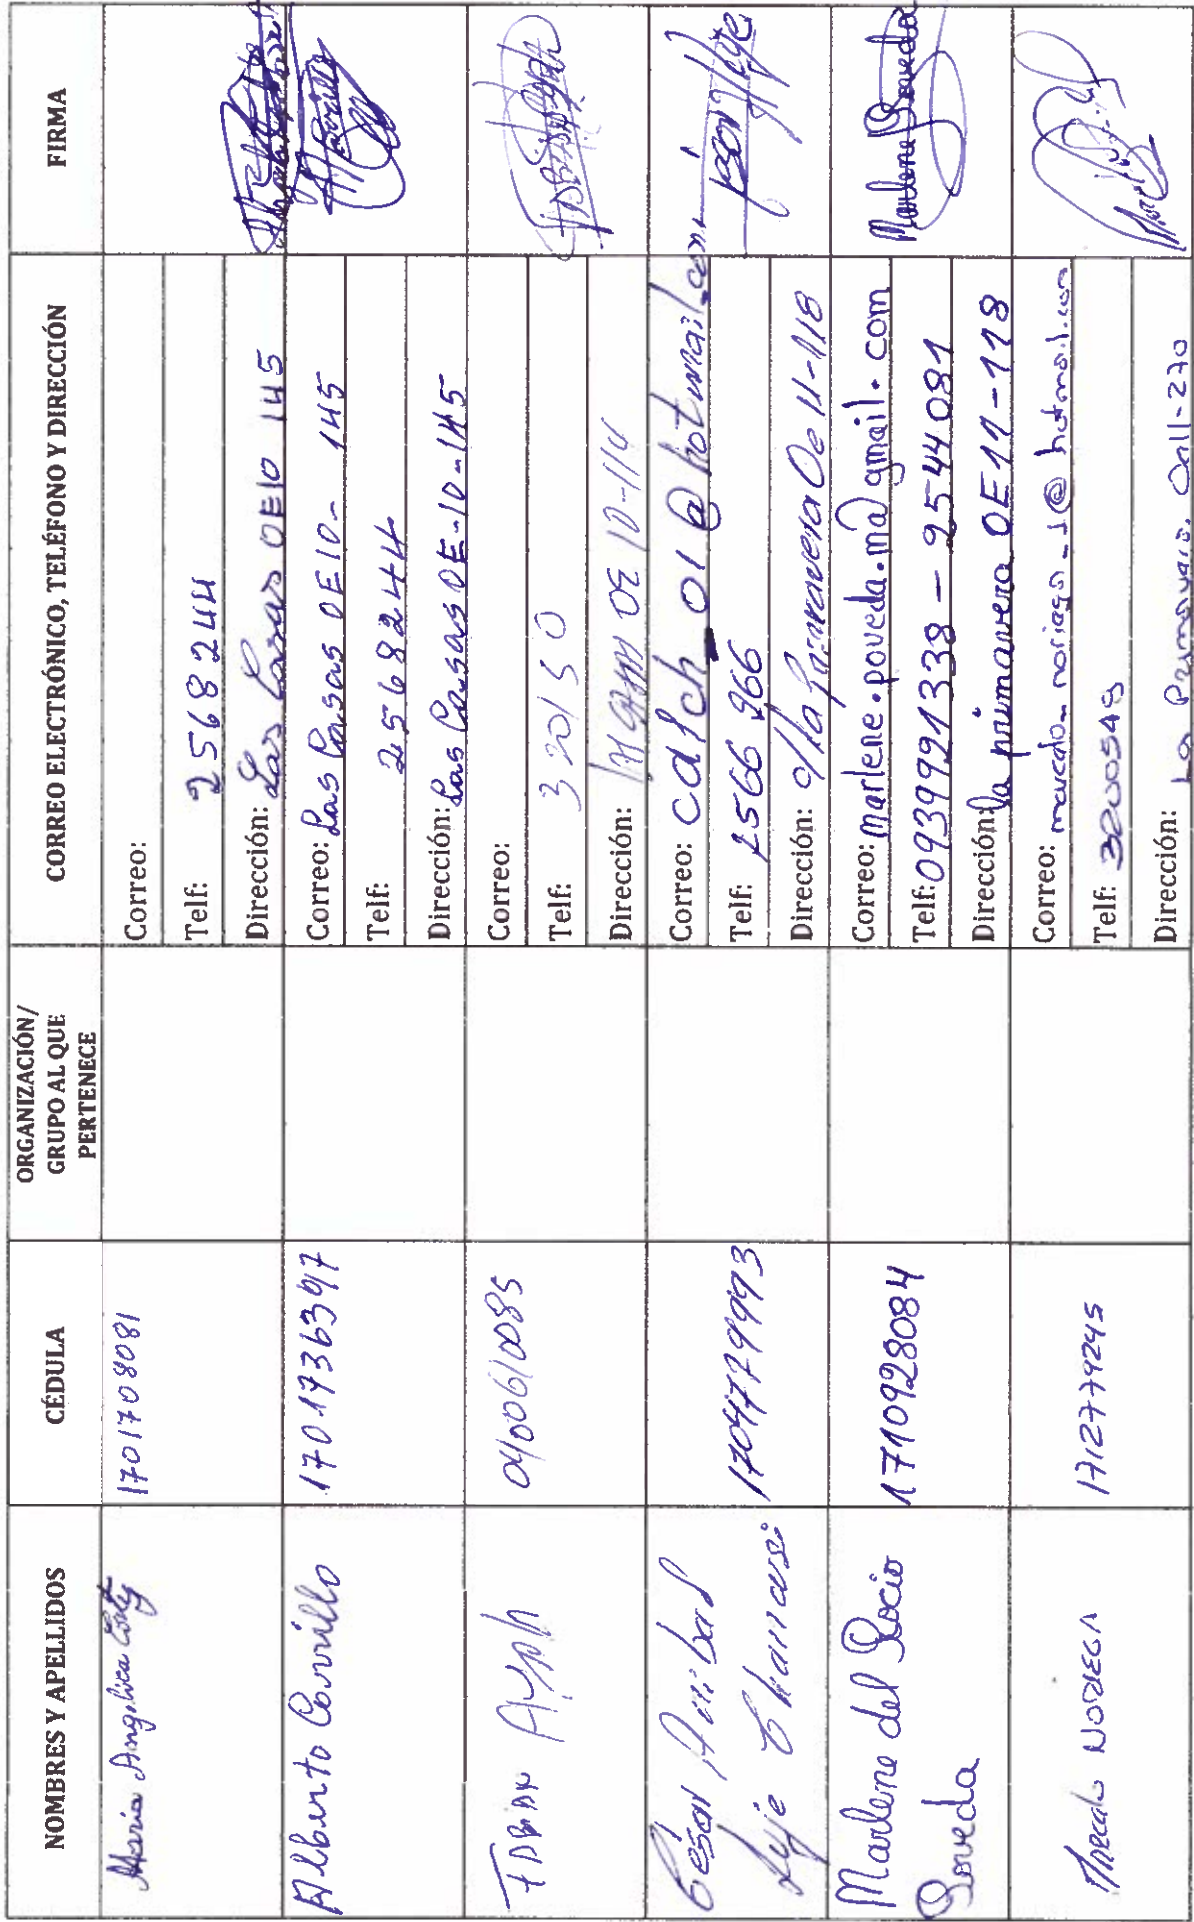 NOMBRES Y APELLIDOS
CÉDULA
ORGANIZACIÓN/
GRUPO AL QUE
PERTENECE
CORREO ELECTRÓNICO, TELÉFONO Y DIRECCIÓN
FIRMA
Maria Angelica
1701708081
Correo:
Telf: 2568244
Dirección: Las Casas OE10 145
Alberto Carrillo
1701736397
Correo: Las Casas OE10- 145
Telf: 2568244
Dirección: Las Casas OE-10-145
FABIAN
0400610085
Correo:
Telf: 320150
Dirección: OE 10-114
César Anibal
1704779993
Correo: cdlch_01@hotmail.com
Telf: 2566 966
Dirección: c/ la primavera Oe 11-118
Marlene del Rocio
Poveda
1710928084
Correo: marlene.poveda.ma@gmail.com
Telf: 0939991338 - 2544081
Dirección: la primavera OE11-118
Marlene Poveda
Marcelo NORIEGA
1712779245
Correo: marcelo_noriega_1@hotmail.com
Telf: 3200549
Dirección: La Primavera Oe11-270